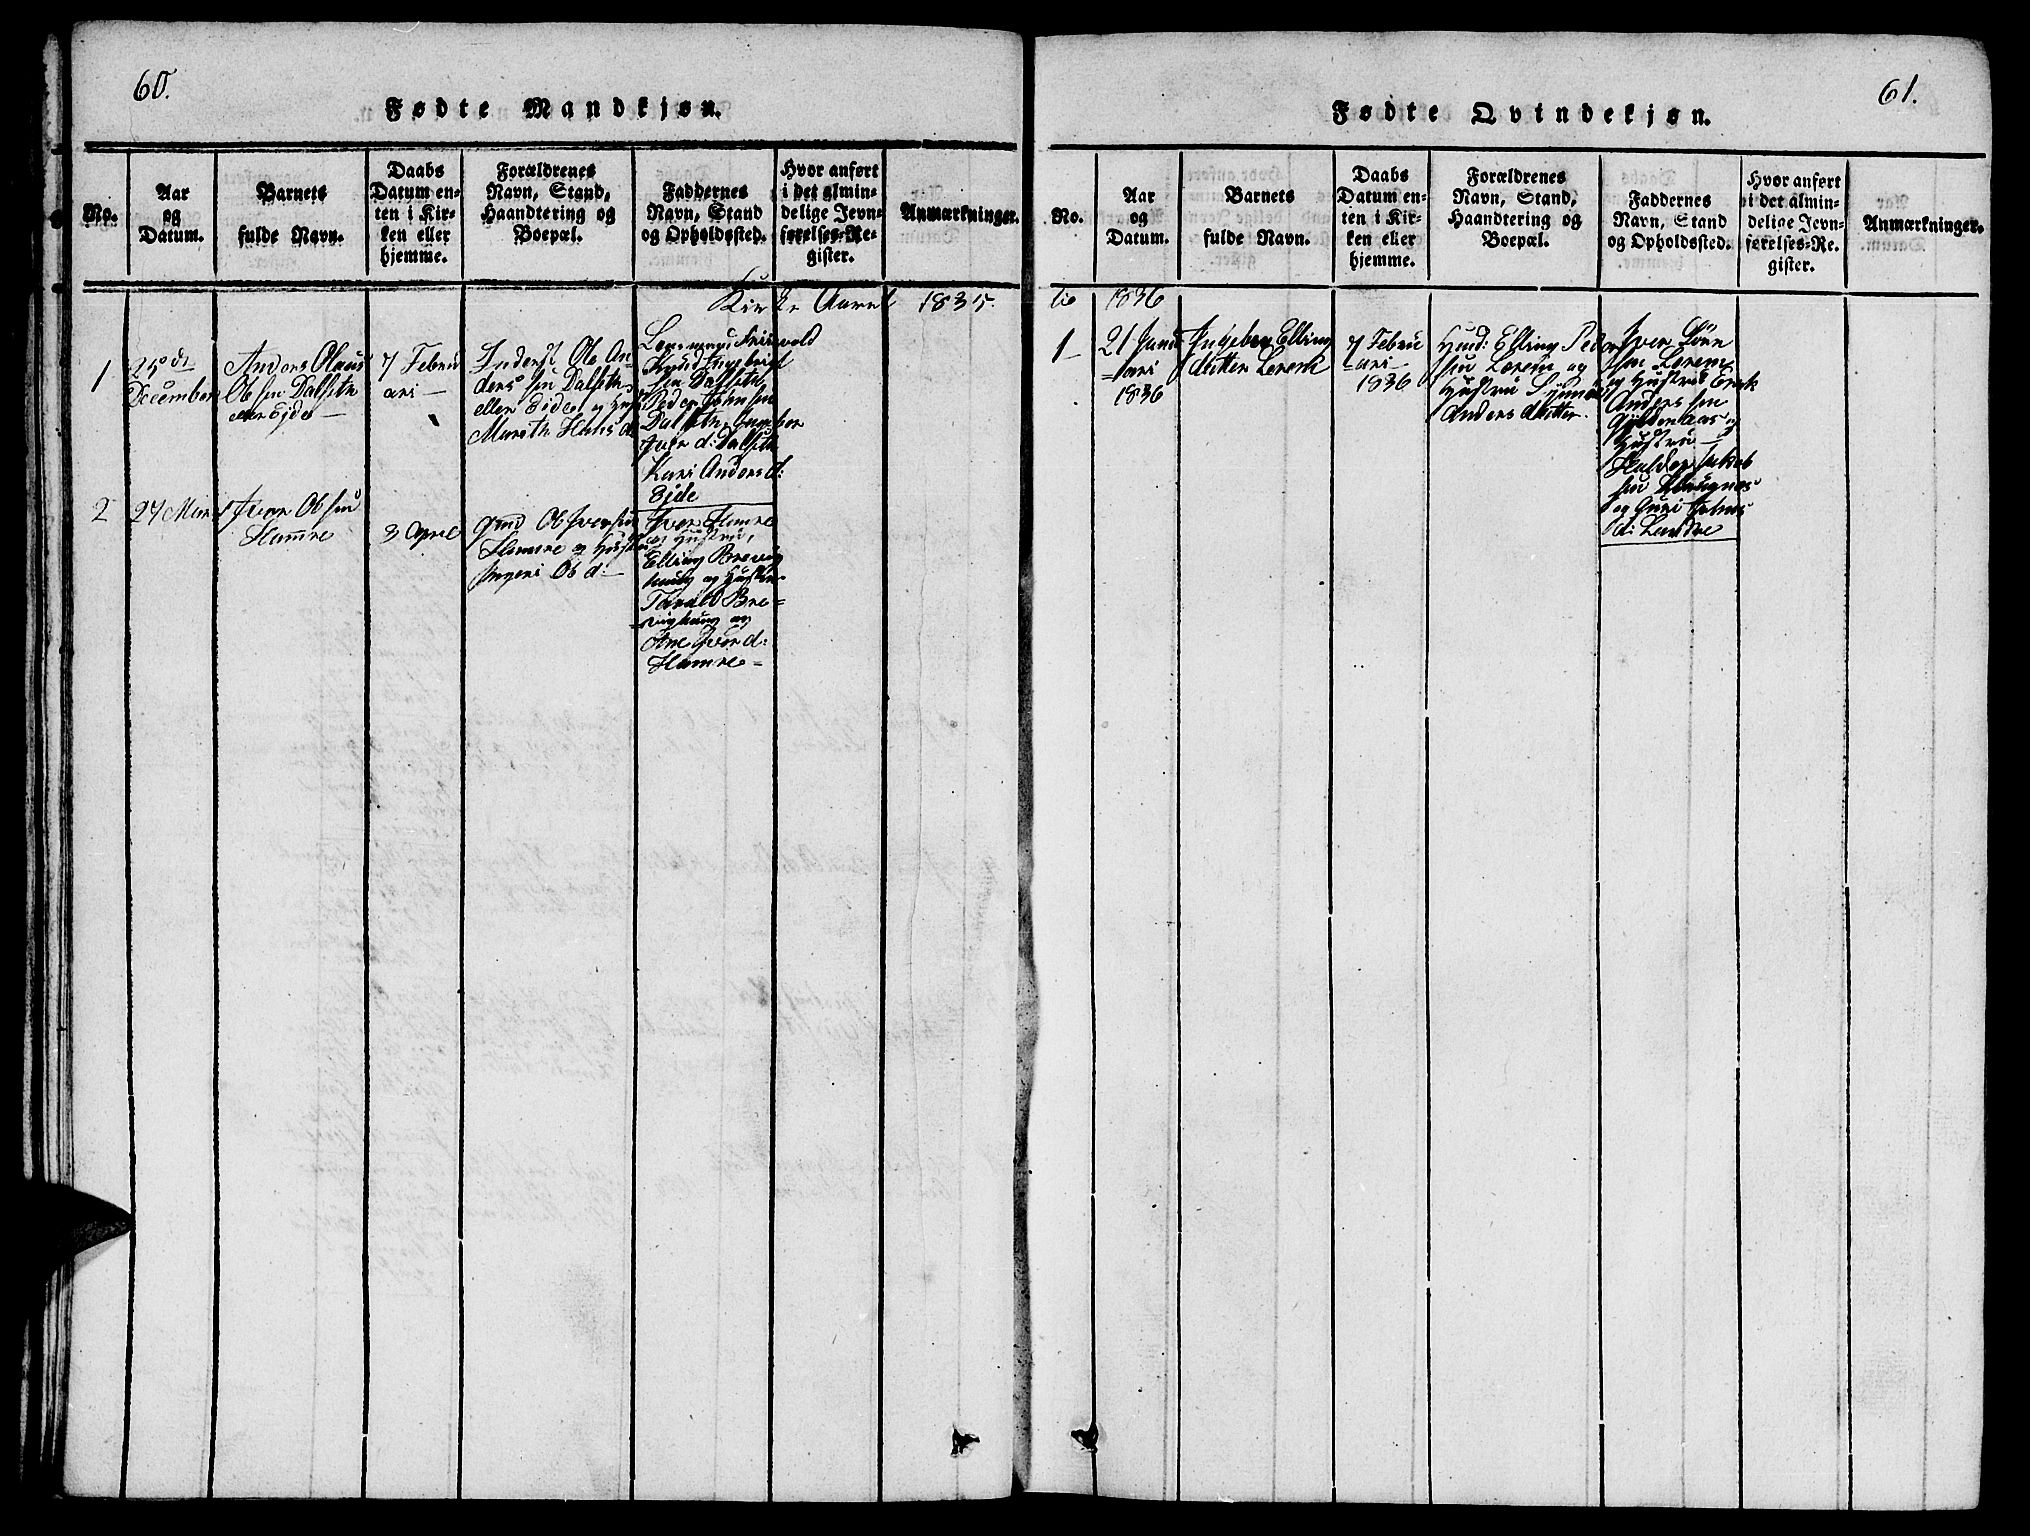 60.
Fødte Mandkjøn.
No.
Aar
og
Datum.
Barnets
fulde Navn.
Daabs
Datum en-
ten i Kir-
ken eller
hjemme.
Forældrenes
Navn, Stand,
Haandtering og
Boepæl.
Faddernes
Navn, Stand
og Opholdssted.
Hvor anført
i det almin-
delige Jevn-
førelses-Re-
gister.
Anmærkninger.
Kirke Aaret 1835.
1
25de
December
Anders Olaus
Ols søn Dalseth
eller Eide
7 Febru
ari
Inderst Ole An-
ders søn Dalseth
eller Eide og Hust
Mareth Hans d
Knud Engebrigt
søn Dalseth,
Peder John søn
Dalseth, Ingebor
Iver d: Dalseth
Kari Anders d:
Eide
2
27 Mars
Iver Ols søn
Hamre
3 April
Ols Iversøn
Hamre og Hustru
Ingeri Ols d:
Iver Hamre
og Hustru,
Elling Brevig
haug og Hustru
Tarald Bre-
vighaug og
Ane Iver d:
Hamre
61.
Fødte Qvindekjøn.
No.
Aar
og
Datum.
Barnets
fulde Navn.
Daabs
Datum en-
ten i Kir-
ken eller
hjemme.
Forældrenes
Navn, Stand,
Haandtering og
Boepæl.
Faddernes
Navn, Stand
og Opholdssted.
Hvor anført
i det almin-
delige Jevn-
førelses-Re-
gister.
Anmærkninger.
1836
1
21 Janu
ari
1836
Ingebor Elling
datter Lerem
7 Febru
ari
1836
Huusmd: Elling Peder
søn Lerem og
Hustru Synnev
Anders datter.
Iver Jørn
søn Lerem
og Hustru Erik
Anders søn
Gyldenaas og
Hustru
Haldor Jakob
søn
og Guri
d: Landre